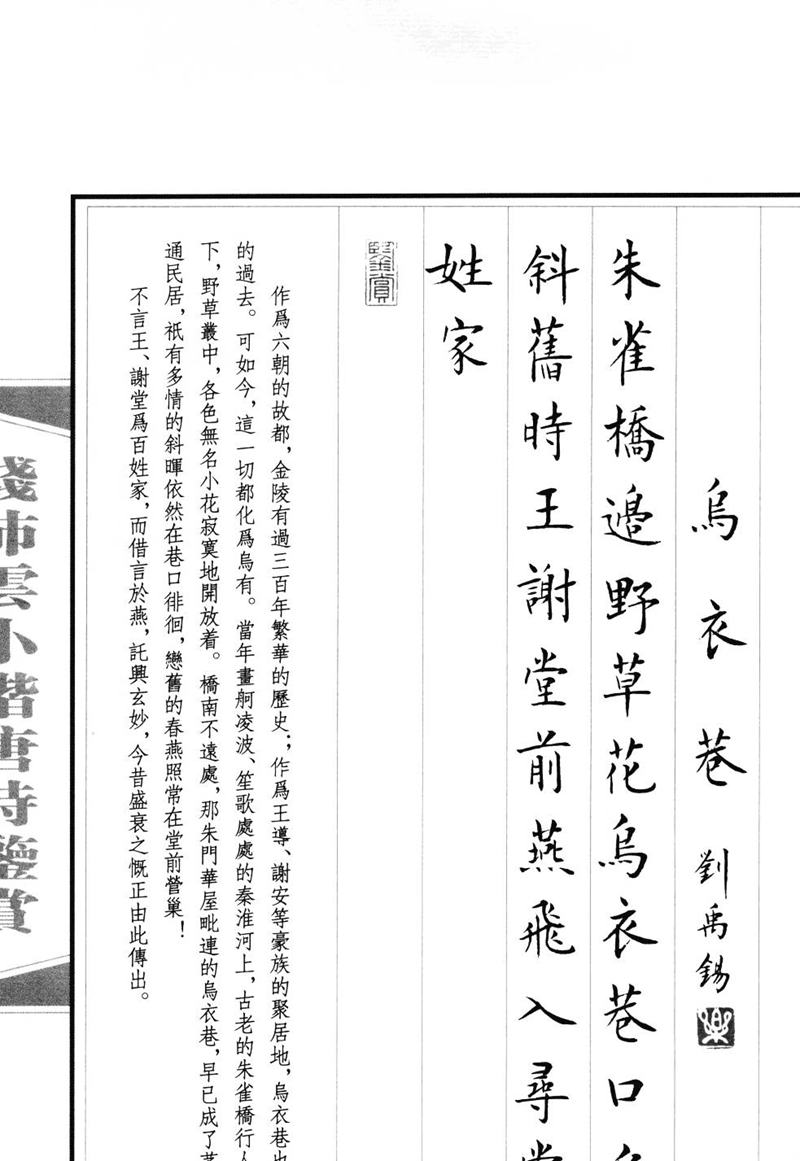 烏衣巷 劉禹錫
朱雀橋邊野草花烏衣巷口
斜舊時王謝堂前燕飛入尋
姓家
鑒賞
作爲六朝的故都，金陵有過三百年繁華的歷史；作爲王導、謝安等豪族的聚居地，烏衣巷
的過去。可如今，這一切都化爲烏有。當年畫舸凌波、笙歌處處的秦淮河上，古老的朱雀橋行
下，野草叢中，各色無名小花寂寞地開放着。橋南不遠處，那朱門華屋毗連的烏衣巷，早已成了
通民居，祇有多情的斜暉依然在巷口徘徊，戀舊的春燕照常在堂前營巢！
不言王、謝堂爲百姓家，而借言於燕，託興玄妙，今昔盛衰之慨正由此傳出。
沛雲小楷唐詩鑒賞